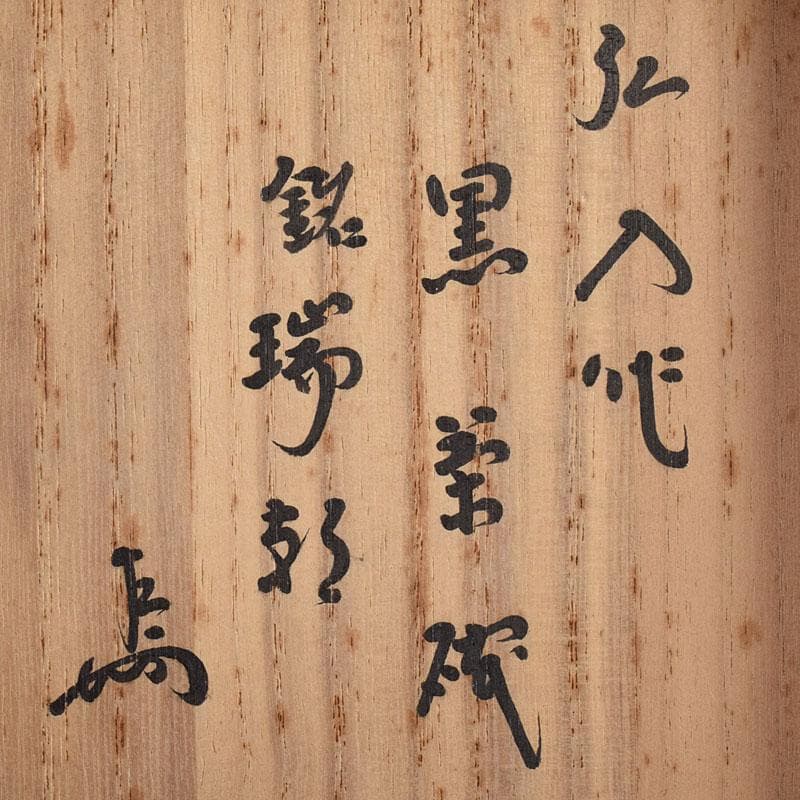 弘入作
黒茶碗
銘瑞朝